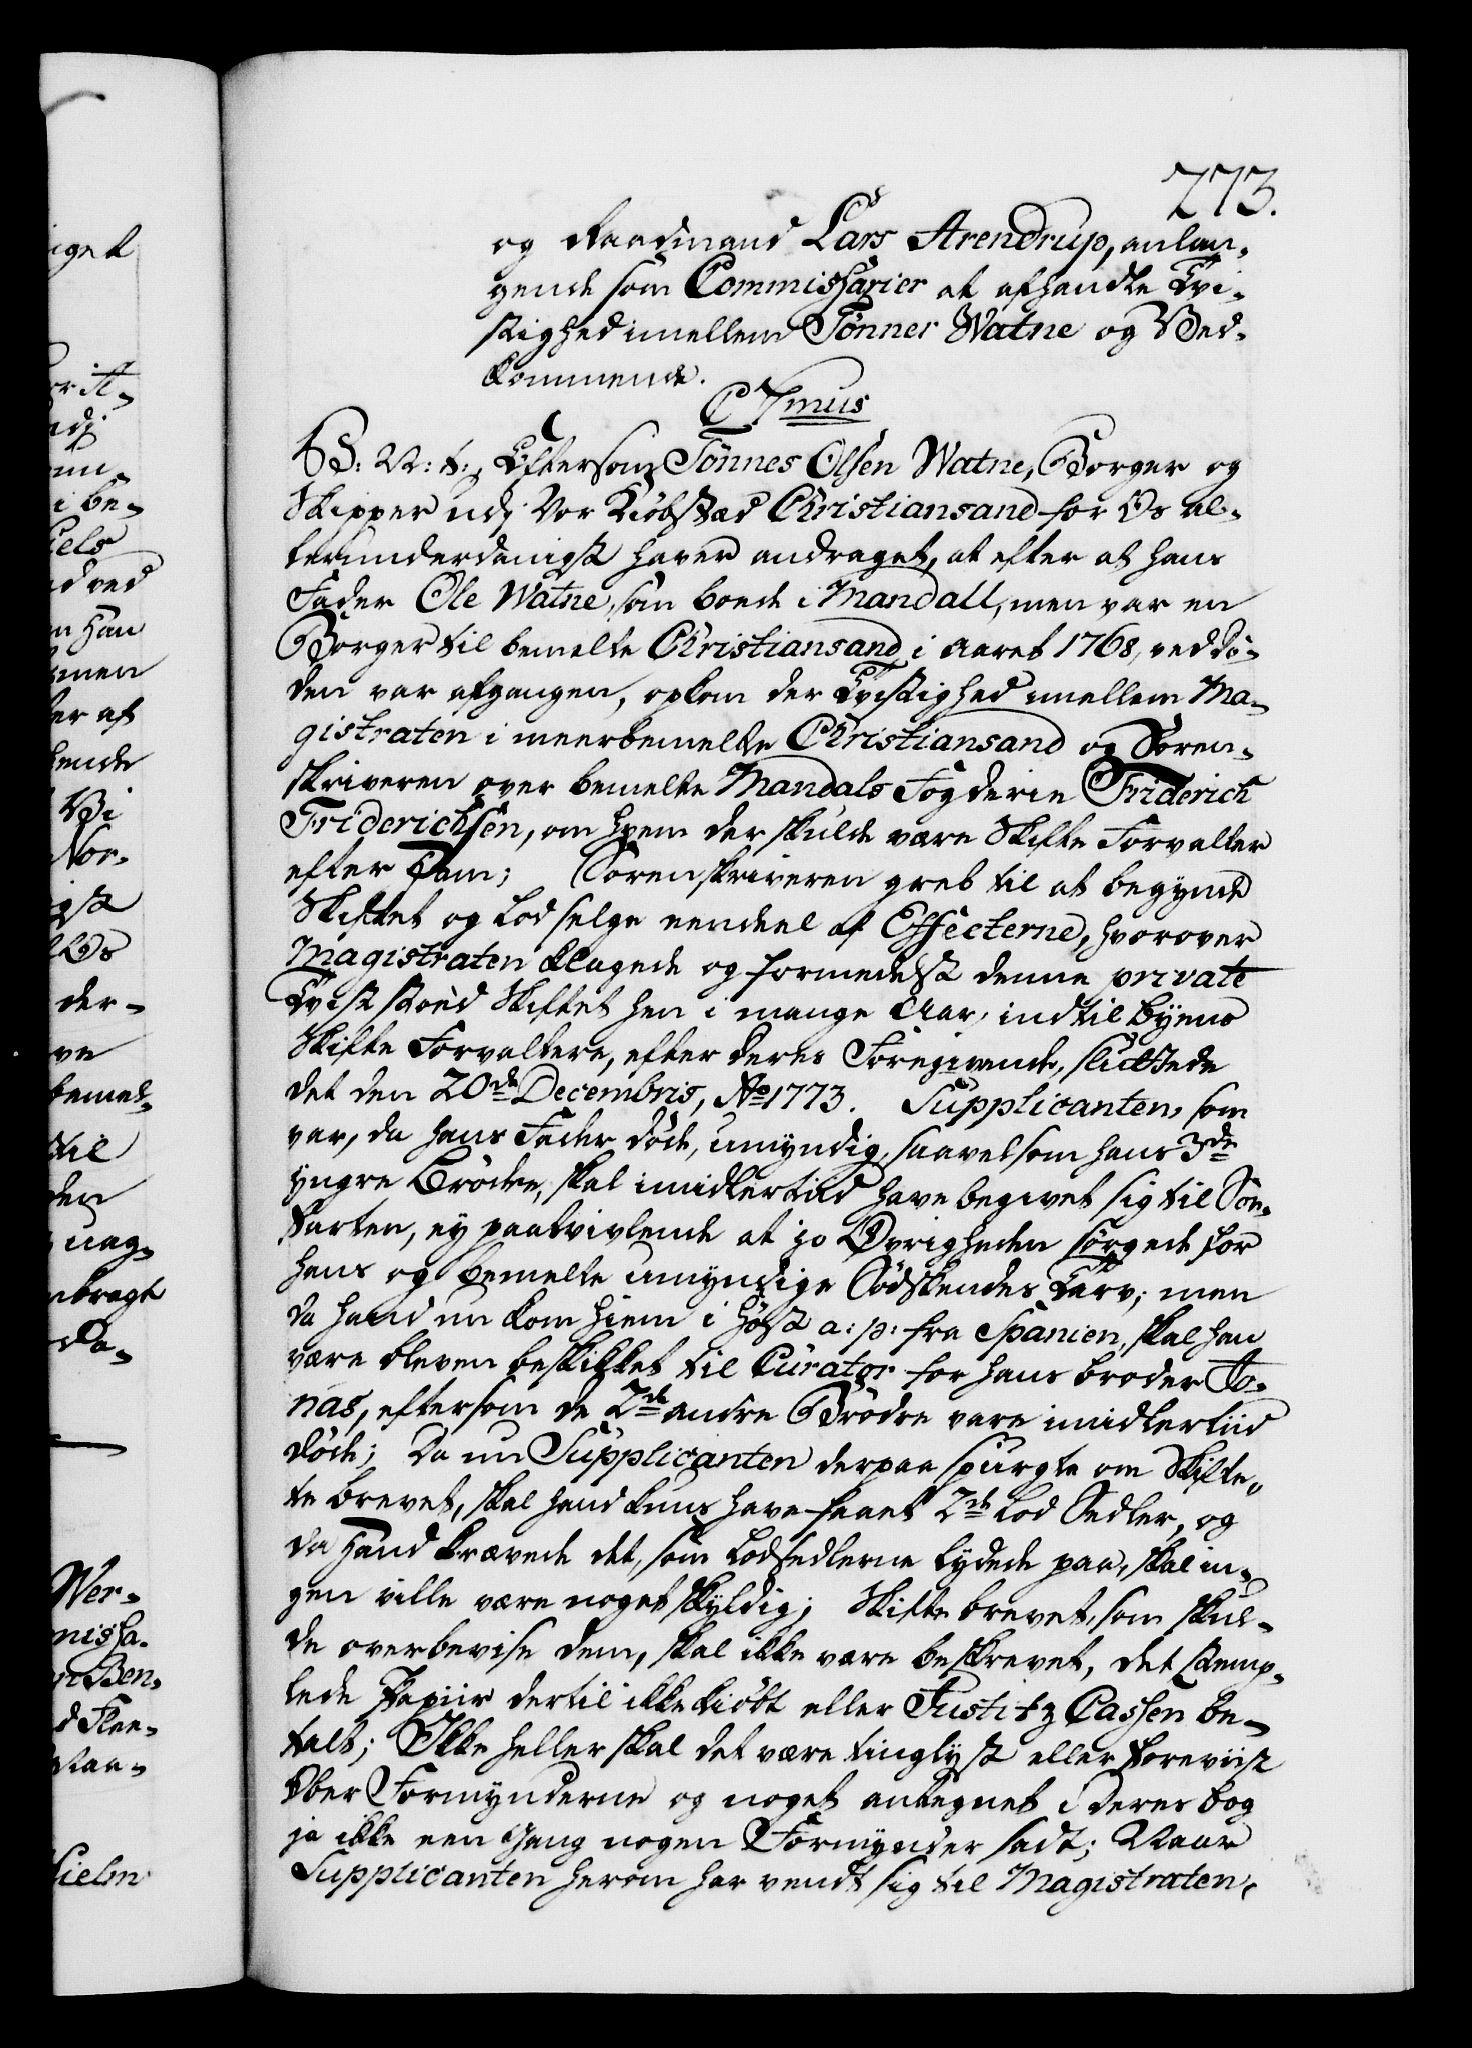 273.
og Raadmand Lars Arendrup, anlan¬
gende som Commissarier at afhandle Tvi¬
stighed imellem Tönner Watne og Ved¬
kommende.
C 7mus
G: V: t:, Eftersom Tönnes Olsen Watne, Borger og
Skipper udj Vor Kiöbstæd Christiansand for Os al¬
lerunderdanigst haver andraget, at efter at hans
Fader Ole Watne, som boede i Mandall, men var en
Borger til bemelte Christiansand, i Aaret 1768, ved Dö¬
den var afgangen, opkom der Tvistighed imellem Ma¬
gistraten i meerbemelte Christiansand og Soren¬
skriveren over bemelte Mandals Fogderie Friderich
Friderichsen, om hvem der skulde være Skifte Forvalter
efter Ham; Sorenskriveren greb til at begynde
Skiftet og lod selge eendeel af Effecterne, hvorover
Magistraten klagede og formedelst denne private
Tvist stoed Skiftet hen i mange Aar, indtil Byens
Skifte Forvaltere, efter deres Foregivende, sluttede
det den 20de Decembris, Ao 1773. Supplicanten, som
var, da hans Fader döde, umyndig, saavelsom hans 3de
yngre Brödre, skal imidlertiid have begivet sig til Söe¬
farten, ey paatvivlende at jo Övrigheden sörgede for
hans og bemelte umyndige Södskendes Tarv; men
da hand nu kom hiem i Höst a: p: fra Spanien, skal han
være bleven beskikket til Curator for hans broder Jo¬
nas, eftersom de 2de andre Brödre vare imidlertiid
döde; Da nu Supplicanten derpaa spurgte om Skif¬
te brevet, skal hand kuns have faaet 2de Lod Sedler, og
da Hand krævede det, som Lodsedlerne lydede paa, skal in¬
gen ville være noget skyldig; Skifte brevet, som skul¬
de overbevise dem, skal ikke være beskrevet, det stemp¬
lede Papiir dertil ikke kiöbt eller Justitz Cassen be¬
talt; Ikke heller skal det være tinglyst eller foreviist
Ober Formynderne og noget antegnet i deres bog
ja ikke een Gang nogen Formynder sadt; Naar
Supplicanten herom har vendt sig til Magistraten,